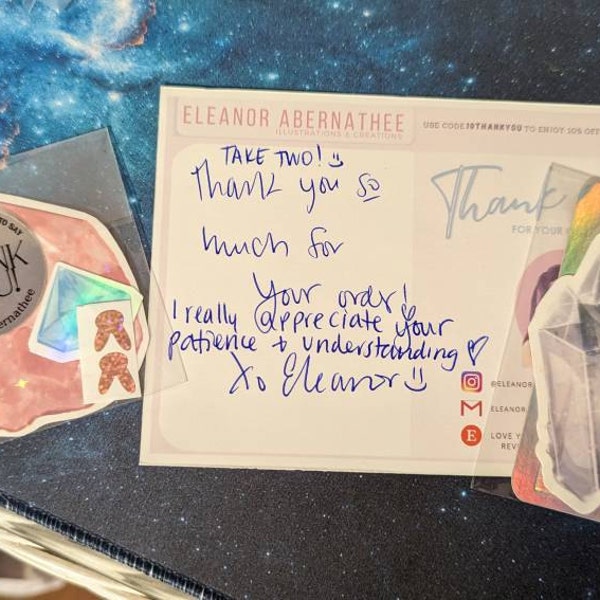 ELEANOR ABERNATHEE
ILLUSTRATIONS & CREATIONS
USE CODE 10THANKYOU TO ENJOY 10% OFF
TAKE TWO!
Thank you so
much for
your order!
I really appreciate your
patience + understanding
Xo Eleanor
Thank
FOR YOUR
@ELEANOR
ELEANOR
LOVE
REV
TO SAY